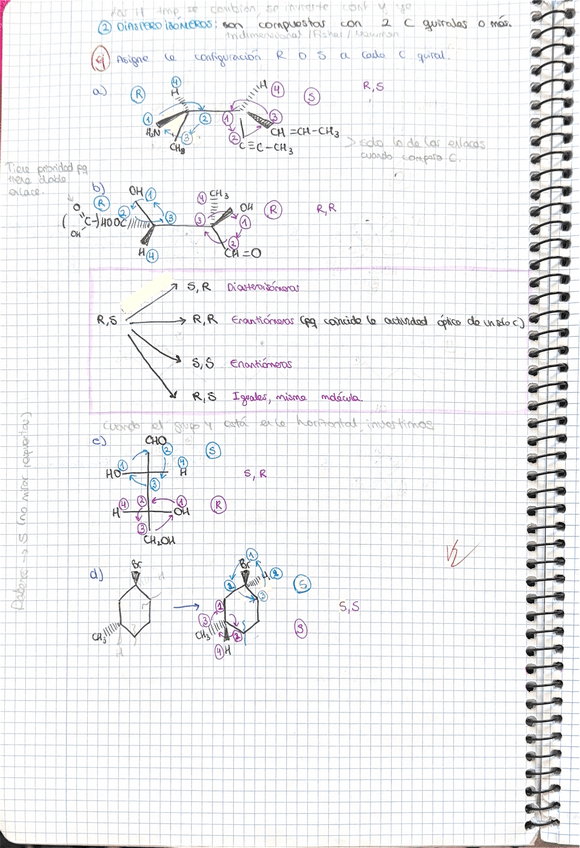 se cambian, se invierte
② DIASTEROISÓMEROS: son compuestos con 2 C quirales o más.
Tridimensional /Fisher/ Newman
④ Asigne la configuración R o S a cada C quiral.
a) R H ④ H ④ S R,S
① ② ① ③
H₂N ③ ② CH=CH-CH₃
CH₃ C≡C-CH₃
> solo la de los enlaces
cuando compara C.
Tiene prioridad pq
tiene doble
enlace.
b) OH ④ CH₃
R ① OH R R,R
(O C-)HOOC ② ③ ③ ①
OH
H ④ ② CH=O
S,R Diasteroisómeros
R,S R,R Enantiómeros (pq coincide la actividad óptica de un solo C)
S,S Enantiómeros
R,S Iguales, misma molécula.
Cuando el grupo 4 está en la horizontal, invertimos
c) CHO ② S
HO ① ④ H
③ S,R
H ④ ② ① OH R
③
CH₂OH
d) Br Br ① H
② ③ S
S,S
CH₃ ③ ① S
CH₃ ②
④ H